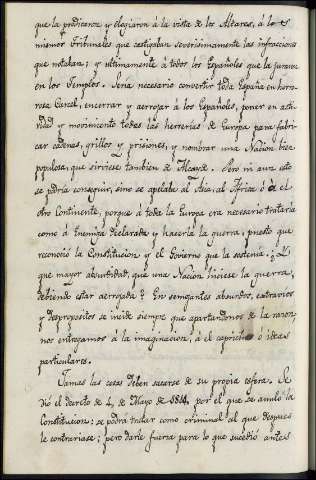 que la predicaron y elogiaron á la vista de los Altares, á los
mismos Tribunales que castigaban severisimamente las infracciones
que notaban; y ultimamente á todos los Españoles que la juraron
en los Templos. Seria necesario convertir toda España en horro-
rosa Carcel, encerrar y aerrojar á los Españoles, poner en acti-
vidad y movimiento todas las herrerias de Europa para fabri-
car cadenas, grillos y prisiones, y nombrar una Nacion bien
populosa, que sirviese tambien de Alcayde. Pero ni aun esto
se podria conseguir, sino se apelaba al Asia, al Africa ó á el
otro Continente, porque á toda la Europa era necesario tratarla
como á Enemiga declarada y hacerla la guerra, puesto que
reconoció la Constitucion y el Govierno que la sostenia. ¿Y
que mayor absurdidad, que una Nacion hiciese la guerra,
debiendo estar aerrojada? En semejantes absurdos, extravios
y despropositos se incide siempre que apartandonos de la razon
nos entregamos á la imaginacion, á el capricho ó ideas
particulares.
Jamas las cosas deben sacarse de su propia esfera. Se
dió el decreto de 4 de Mayo de 1814, por el que se anuló la
Constitucion: se podrá tratar como criminal al que despues
le contrariase; pero darle fuerza para lo que sucedió antes